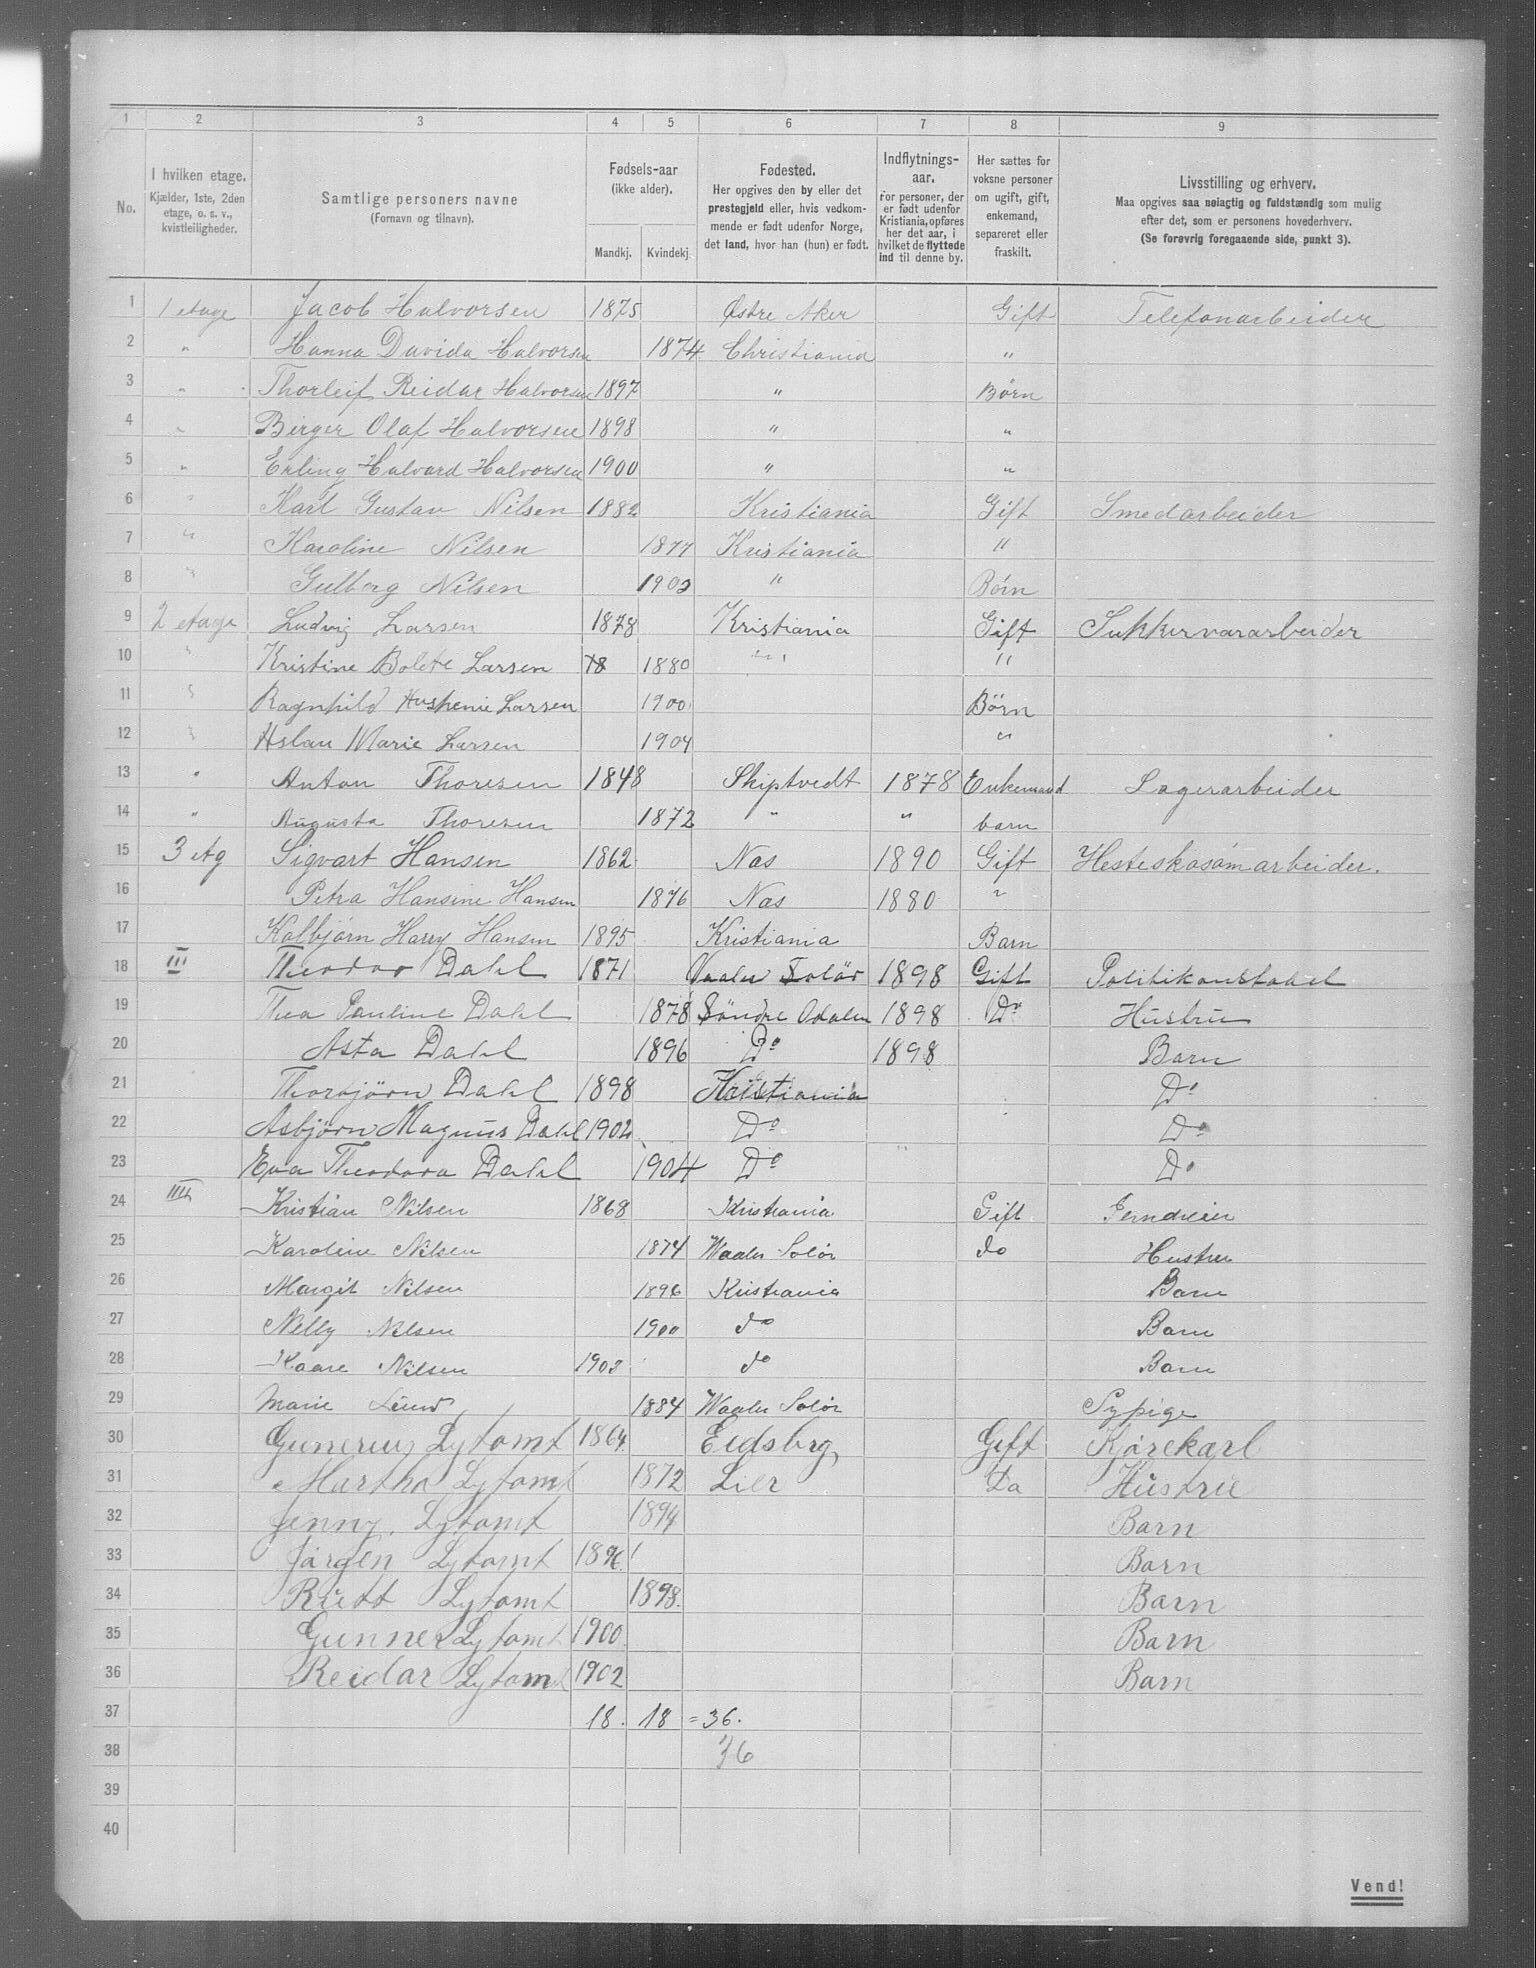 1 2 3 4 5 6 7 8 9
No.
I hvilken etage.
Kjælder, 1ste, 2den
etage, o. s. v.,
kvistleiligheder.
Samtlige personers navne
(Fornavn og tilnavn).
Fødsels-aar
(ikke alder).
Mandkj. Kvindekj.
Fødested.
Her opgives den by eller det
prestegjeld eller, hvis vedkom-
mende er født udenfor Norge,
det land, hvor han (hun) er født.
Indflytnings-
aar.
For personer, der
er født udenfor
Kristiania, opføres
her det aar, i
hvilket de flyttede
ind til denne by.
Her sættes for
voksne personer
om ugift, gift,
enkemand,
separeret eller
fraskilt.
Livsstilling og erhverv.
Maa opgives saa nøiagtig og fuldstændig som mulig
efter det, som er personens hovederhverv.
(Se forøvrig foregaaende side, punkt 3).
1 1 etage Jacob Halvorsen 1875 Østre Aker Gift Telefonarbeider
2 " Hanna Davida Halvorsen 1874 Christiania "
3 " Thorleif Reidar Halvorsen 1897 " Børn
4 " Birger Olaf Halvorsen 1898 " "
5 " Erling Halvard Halvorsen 1900 " "
6 " Karl Gustav Nilsen 1882 Kristiania Gift Smedarbeider
7 " Karoline Nilsen 1877 Kristiania "
8 " Gulborg Nilsen 1903 " Børn
9 2 etage Ludvig Larsen 1878 Kristiania Gift Sukkervararbeider
10 " Kristine Bolete Larsen 78 1880 " "
11 " Ragnhild Larsen 1900 Børn
12 " Aslau Marie Larsen 1904 "
13 " Anton Thoresen 1848 Skiptvedt 1878 Enkemand Lagerarbeider
14 " Augusta Thoresen 1872 " " barn
15 3 etg Sigvart Hansen 1862 Nas 1890 Gift Hesteskosømarbeider.
16 Petra Hansine Hansen 1876 Nas 1880 "
17 Kolbjørn Harry Hansen 1895 Kristiania Barn
18 III Theodor Dahl 1871 Vaaler Solör 1898 Gift Politikonstabel
19 Thea Pauline Dahl 1878 Söndre Odalen 1898 Do Hustru
20 Asta Dahl 1896 Do 1898 Barn
21 Thorbjörn Dahl 1898 Kristiania Do
22 Asbjörn Magnus Dahl 1902 Do Do
23 Eva Theodora Dahl 1904 Do Do
24 IIII Kristian Nilsen 1868 Kristiania Gift Jerndreier
25 Karoline Nilsen 1874 Waaler Solör do Hustru
26 Margit Nilsen 1896 Kristiania Barn
27 Nelly Nilsen 1900 do Barn
28 Kaare Nilsen 1903 do Barn
29 Marie Lund 1884 Waaler Solör Sypige
30 Gunerius Lytomt 1864 Eidsbrg Gift Kjørekarl
31 Martha Lytomt 1872 Lier Do Hustrue
32 Jenny Lytomt 1894 Barn
33 Jørgen Lytomt 1896 Barn
34 Rutt Lytomt 1898 Barn
35 Gunner Lytomt 1900 Barn
36 Reidar Lytomt 1902 Barn
37 18. 18 = 36.
38 36
39
40
Vend!